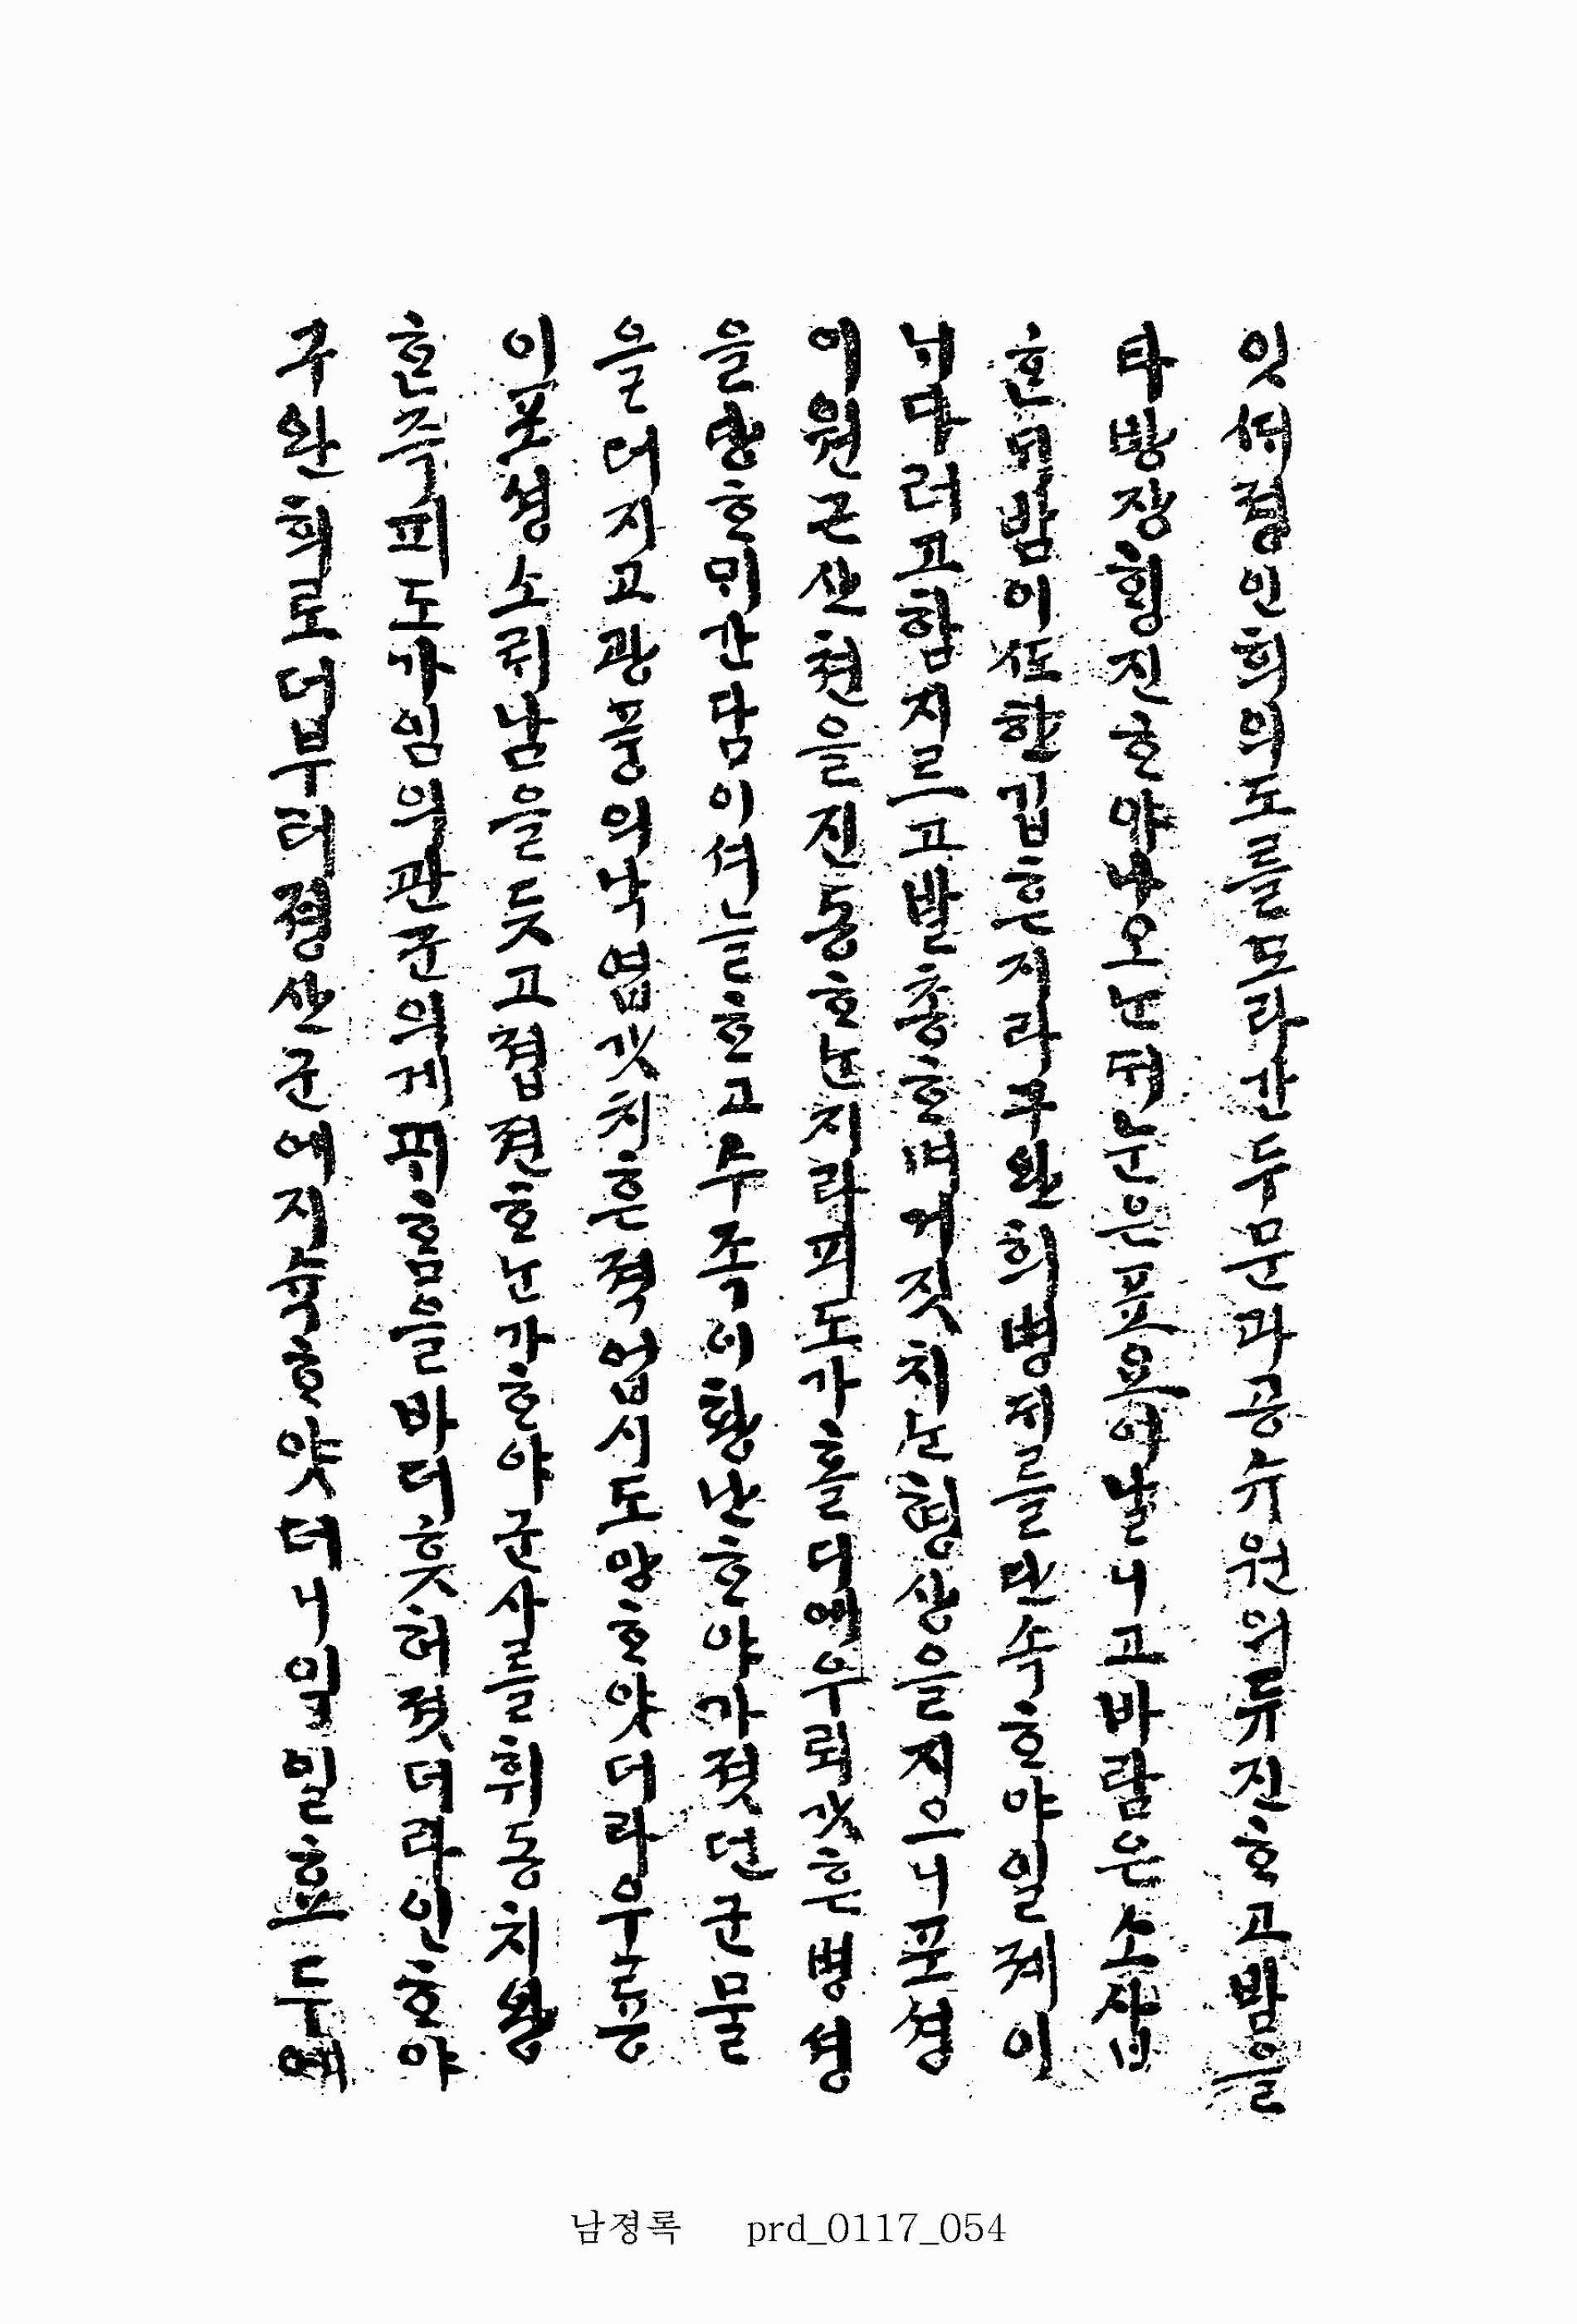 잇ᄯᅥ졍인희의도를ᄯᅩ라간두문과공슈원의듀진ᄒᆞ고밤을
타방장ᄒᆡᆼ진ᄒᆞ야나오ᄂᆞᆫ뒤눈은표표이날니고바람은소삽
ᄒᆞᆫᄃᆡ밤이ᄯᅩ한깁흔지라구완희병져를단속ᄒᆞ야일졔이
ᄂᆡ다러고함지르고발총ᄒᆞ며게짓치ᄂᆞᆫ형상을지으니포셩
이원근산쳔을진동ᄒᆞᄂᆞᆫ지라피도가홀디에우뢰갓흔병셩
을당ᄒᆞᄆᆡ간담이셔늘ᄒᆞ고슈족이황난ᄒᆞ야가졋던군물
을더지고광풍의낙엽갓치흔젹업시도망ᄒᆞ얏더라우룡
이포셩소ᄅᆡ남을듯고졉젼ᄒᆞᄂᆞᆫ가ᄒᆞ야군사를휘동치왕
ᄒᆞᆫ즉피도가임의관군의게ᄑᆡᄒᆞᆷ을바더흣허졋더라인ᄒᆞ야
구완희로더부러졍산군에지슉ᄒᆞ얏더니잇ᄯᅢ일효두에
남졍록 prd_0117_054